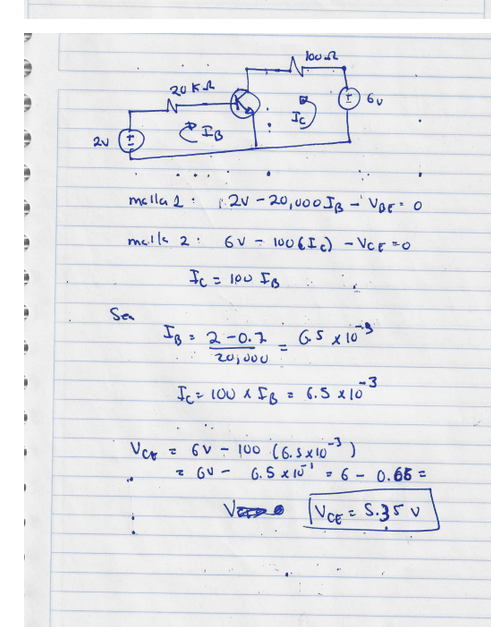 100Ω
20KΩ
6v
IC
IB
2v
malla 1: 2V - 20,000 IB - VBE = 0
malla 2: 6V - 100(IC) - VCE = 0
IC = 100 IB
Sea
IB = 2 - 0.7 / 20,000 = 65 x 10
IC = 100 x IB = 6.5 x10^-3
VCE = 6V - 100 (6.5x10^-3)
= 6V - 6.5 x 10^-1 = 6 - 0.65 =
VCE = 5.35 V